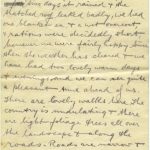 two days it rained & the
thatched roof leaked badly, we had
no blankets & not
rations were decidedly short
however we were fairly happy since
then the weather has cleared & we
have had two lovely warm days
& nothing and we can see quite
a pleasant time ahead of us.
There are lovely walks here the
country is undulating & there
are light foliage trees all over
the landscape & along the
roads. Roads are narrow &